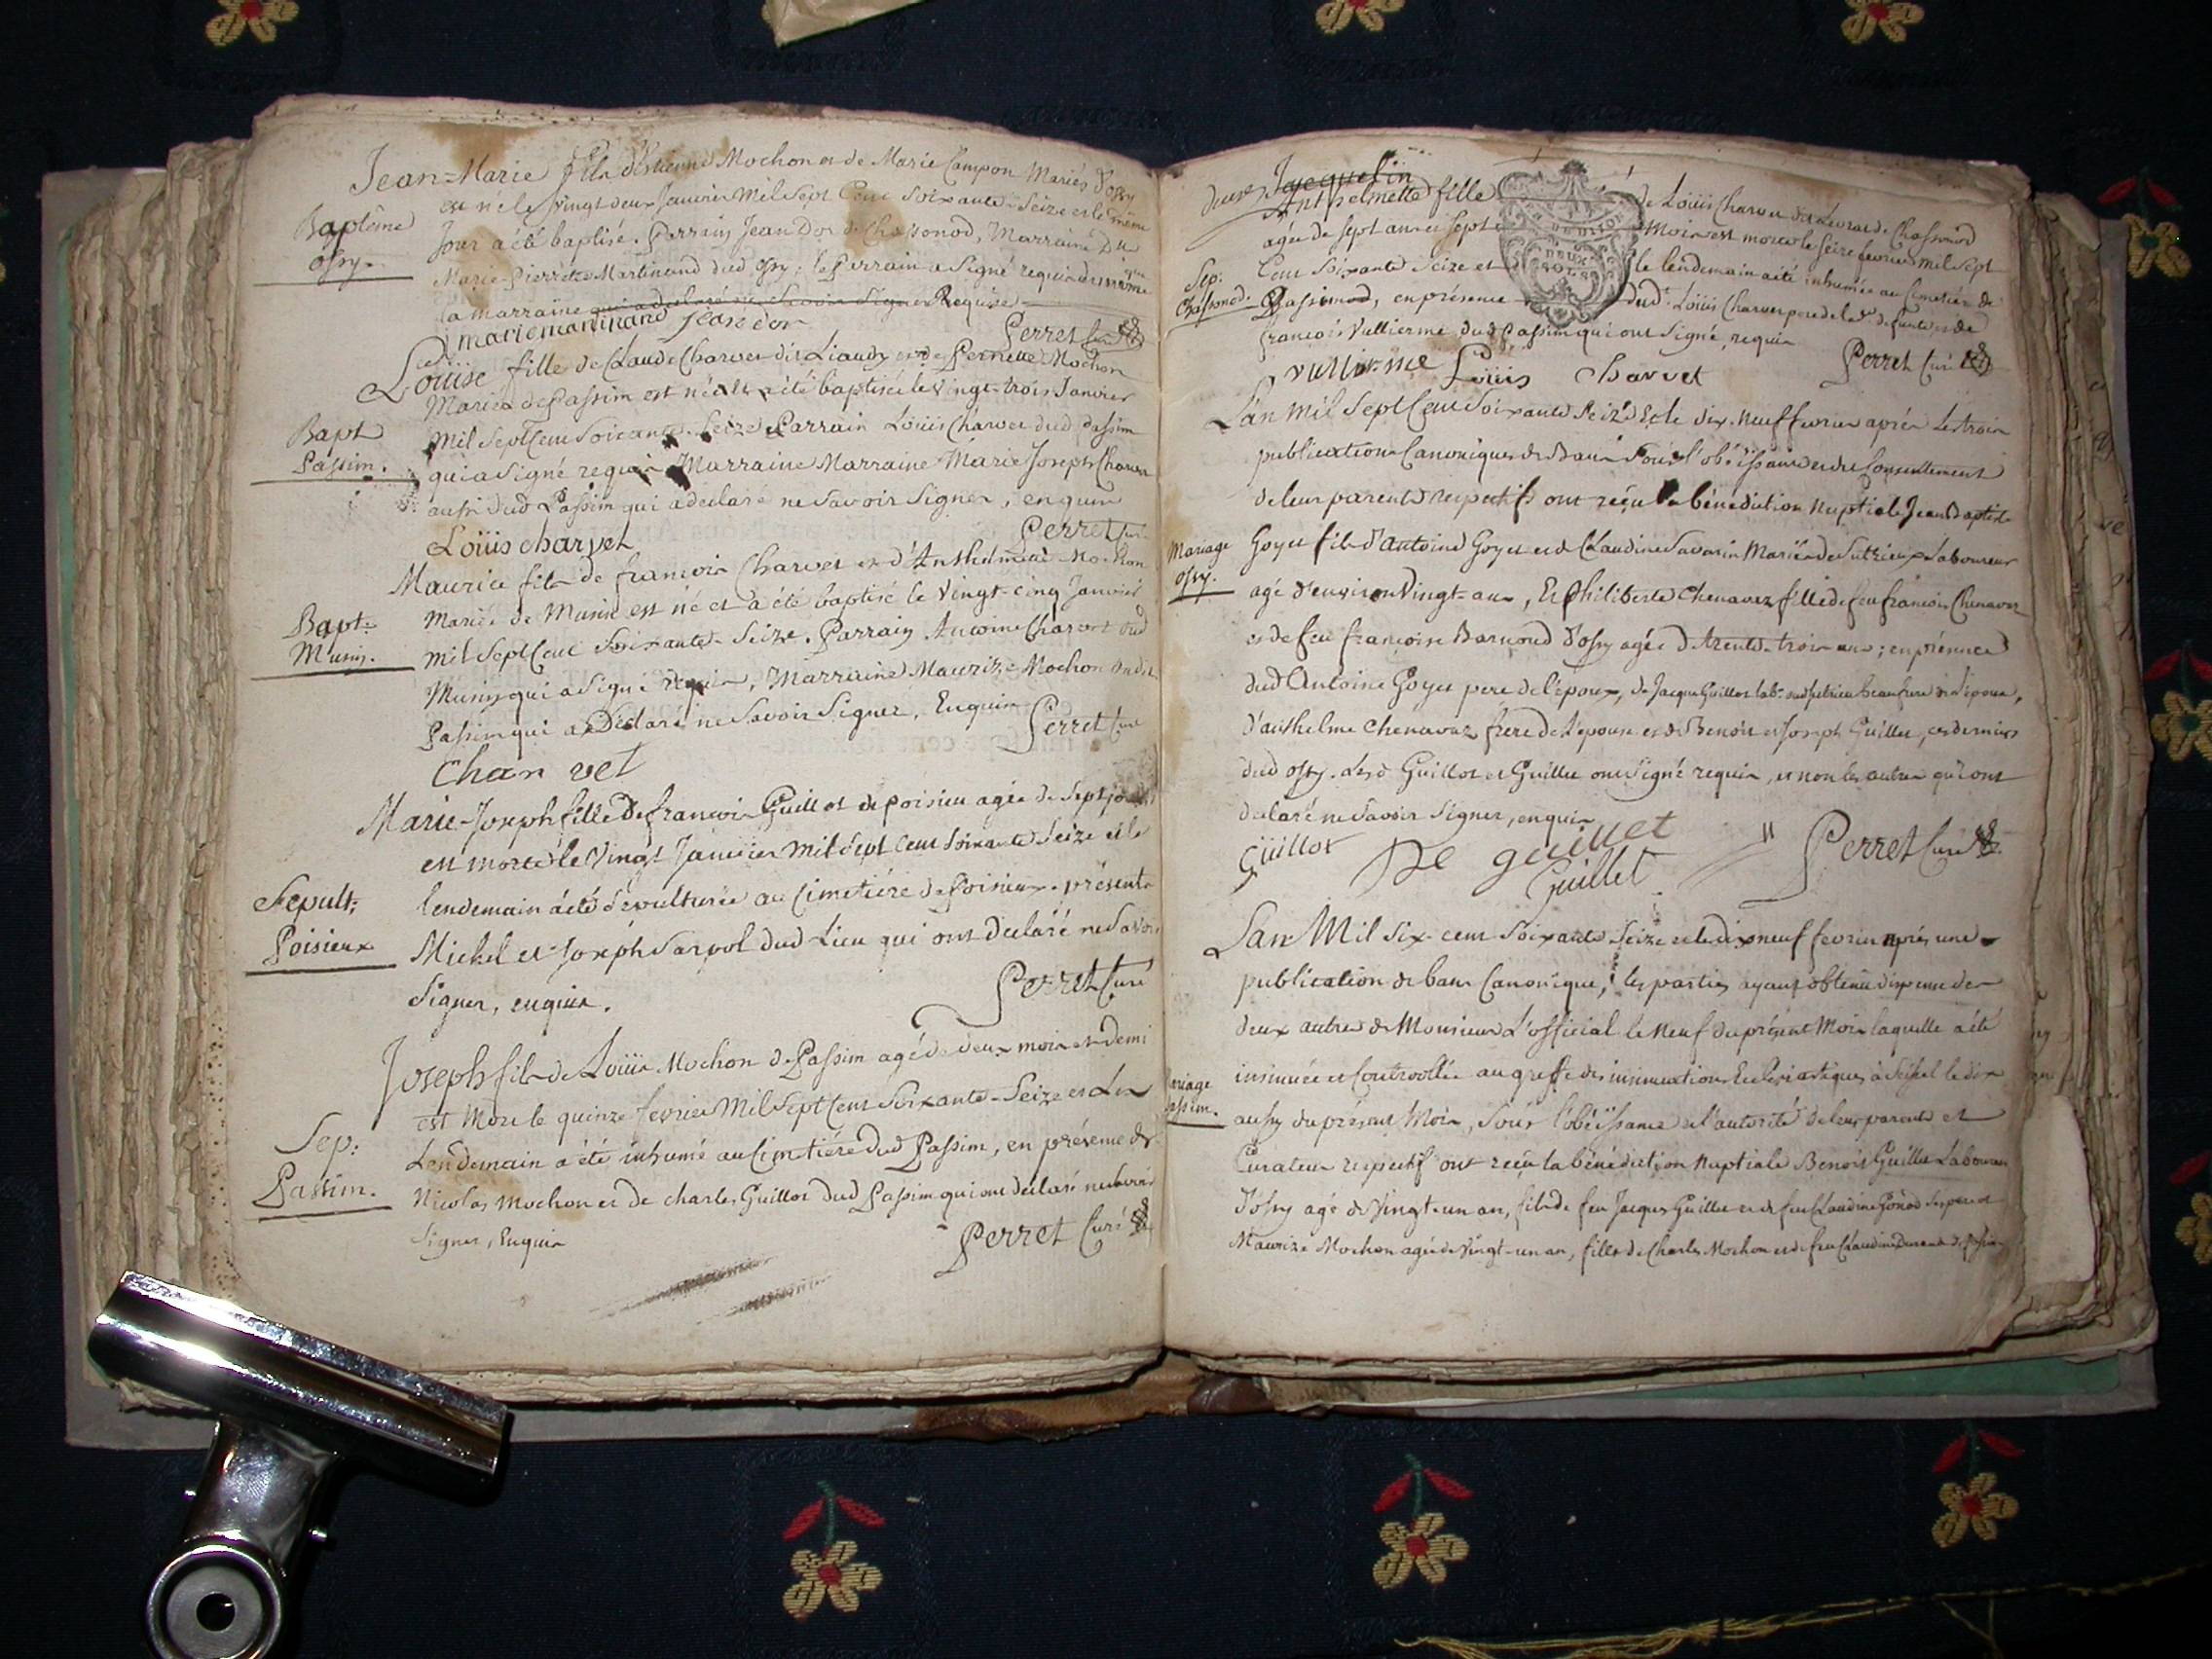 Jean-Marie fils d'Estienne Mochon et de Marie Campon Mariés d'Ossy
est né le vingt deux Janvier Mil Sept Cent Soixante-Seize et le même
Baptême
Ossy.
Jour a été baptisé. Perrain Jean Dor de Chassonod, Marraine
Marie Pierrette Martinand dud Ossy; le Perrain a Signé requis de même
la Marraine qui a declaré ne Savoir Signer Requise
marie martinand Jean dor
Perret Curé
Louise fille de Claude Charvet dit Liaudy et de Pernette Mochon
Mariés de Passim est née et a été baptisée le vingt-trois Janvier
Bapt
Passim.
Mil Sept Cent Soixante-Seize Parrain Loüis Charvet dud Passim
qui a Signé requis Marraine Marraine Marie Joseph Charvet
aussi dud Passim qui a declaré ne Savoir Signer, enquise
Loüis charvet
Perret Curé
Maurice fils de francois Charvet et d'Anthelmette Mochon
Bapt:
Musin.
Mariés de Musin est né et a été baptisé le Vingt-cinq Janvier
Mil Sept Cent Soixante-Seize. Parrain Antoine Charvet dud
Musin qui a Signé requis, Marraine Maurize Mochon dud
Passim qui a Déclaré ne Savoir Signer, Enquise
Perret Curé
Charvet
Marie-Joseph fille de francois Guillot de poisieu agée de Sept jours
est morte le Vingt Janvier Mil Sept Cent Soixante Seize et le
Sepult:
Poisieux
lendemain a été Sépulturée au Cimetiére de Poisieux. présents
Michel et Joseph Sarpol dud Lieu qui ont Declaré ne Savoir
Signer, enquis.
Perret Curé
Joseph fils de Loüis Mochon de Passim agé de deux mois et demi
est Mort le quinze fevrier Mil Sept Cent Soixante-Seize et Le
Sep:
Passim.
Lendemain a été inhumé au Cimetiére dud Passim, en présence de
Nicolas Mochon et de charles Guillot dud Passim qui ont declaré ne Savoir
Signer, Enquis
Perret Curé
Jacquelin
Anthelmette fille de Loüis Charvet de Chassonod
agée de sept ans et Sept Mois est morte le Seize fevrier Mil Sept
Sep:
Chassonod.
Cent Soixante Seize et le lendemain a été inhumée au Cimetiére de
Passimod, en présence dud. Loüis Charvet pere de la d. defunte et de
francois Vullierme dud Passim qui ont Signé, requis
vullierme Loüis Charvet
Perret Curé
DEUX SOLS
L'an Mil Sept Cent Soixante Seize et le dix-neuf fevrier aprés les trois
publications Canoniques de Bans Sous l'obéissance et du Consentement
de leurs parents respectifs ont reçu la bénédiction Nuptiale Jean Baptiste
Mariage
Ossy.
Goyet fils d'Antoine Goyet et de Claudine Savarin Mariés de Sutrieux Laboureur
agé d'environ Vingt-ans, Et philiberte Chenavaz fille de feu francois Chenavaz
et de feu francoise Barnoud d'Ossy agée de trente-trois ans; en présence
dud Antoine Goyet pere de l'époux, de Jacque Guillot lab. dud Sutrieu beau frere de l'époux,
d'anthelme Chenavaz frere de l'épouse et de Benoit et Joseph Guillet, ces derniers
dud Ossy. Lesd Guillot et Guillet ont Signé requis, et non les autres qui ont
declaré ne Savoir Signer, enquis
Guillot De guillet Guillet
Perret Curé
L'an Mil Six-cent Soixante Seize et le dix neuf fevrier aprés une
publication de bans Canonique, les parties ayant obtenu dispense des
deux autres de Monsieur L'official le Neuf du présent Mois laquelle a été
Mariage
Passim.
insinuée et Controollée au greffe des insinuations Ecclésiastiques à Seissel le dix
aussy du présent Mois, Sous l'obéissance et l'autorité de leurs parents et
Curateur respectif ont reçu la bénédiction Nuptiale Benoit Guillet Laboureur
d'Ossy agé de Vingt-un an, fils de feu Jacques Guillet et de feu Claudine
Maurize Mochon agée de Vingt-un an, fille de Charles Mochon et de feu Claudine